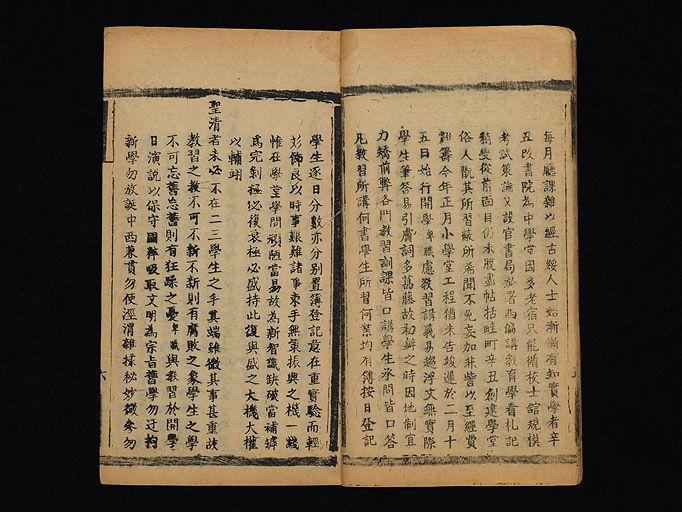 每月廳課雜以經古綏人士始漸漸有知實學者辛
丑改書院為中學堂因多老宿只能循校士舘規模
考試策論又設官書局於署西編講教育學看札記
稍變從前面目仍未脫盡帖括畦町辛丑創建學堂
俗人觀其所習蔽所希聞不免妄加非訾以至經費
難籌今年正月小學堂工程猶未告竣遲於二月十
五日始行開學卑職慮教習講義易趨浮文無實際
學生筆答易引膚詞多葛藤故初辦之時因地制宜
力矯前弊各門教習訓課皆口講學生承問皆口答
凡教習所講何書學生所習何業均有簿按日登記
學生逐日分數亦分別置簿登記意在重實驗而輕
彣飾良以時事艱難諸事束手無策振興之機一綫
惟在學堂學問頑陋當易故為新智識缺破當補罅
為完剝極必復衰極必盛持此復與盛之大機大權
以輔翊
聖清者未必不在二三學生之手其端雖微其事甚重故
教習之教不可不新不新則有腐敗之象學生之學
不可忘舊忘舊則有狂躁之憂卑職與教習於開學
日演說以保守國粹吸取文明為宗旨舊學勿迂拘
新學勿放誕中西兼貫勿使涇渭雜揉秘妙微參勿
六